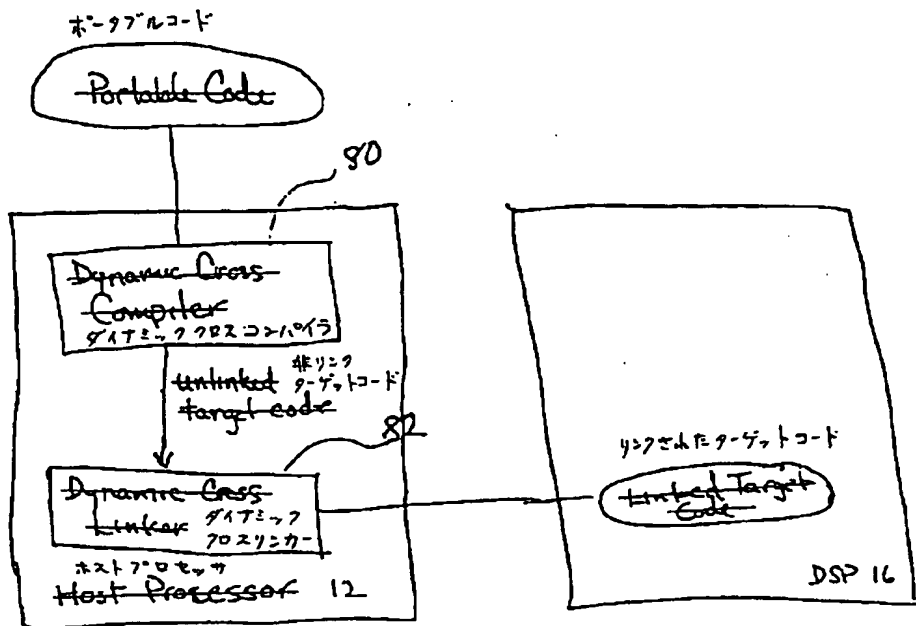 ポータブルコード
Portable Code
80
Dynamic Cross
Compiler
ダイナミッククロスコンパイラ
unlinked 非リンク
ターゲットコード
target code
82
Dynamic Cross
Linker ダイナミック
クロスリンカー
ホストプロセッサ
Host Processor 12
リンクされたターゲットコード
Linked Target
Code
DSP 16